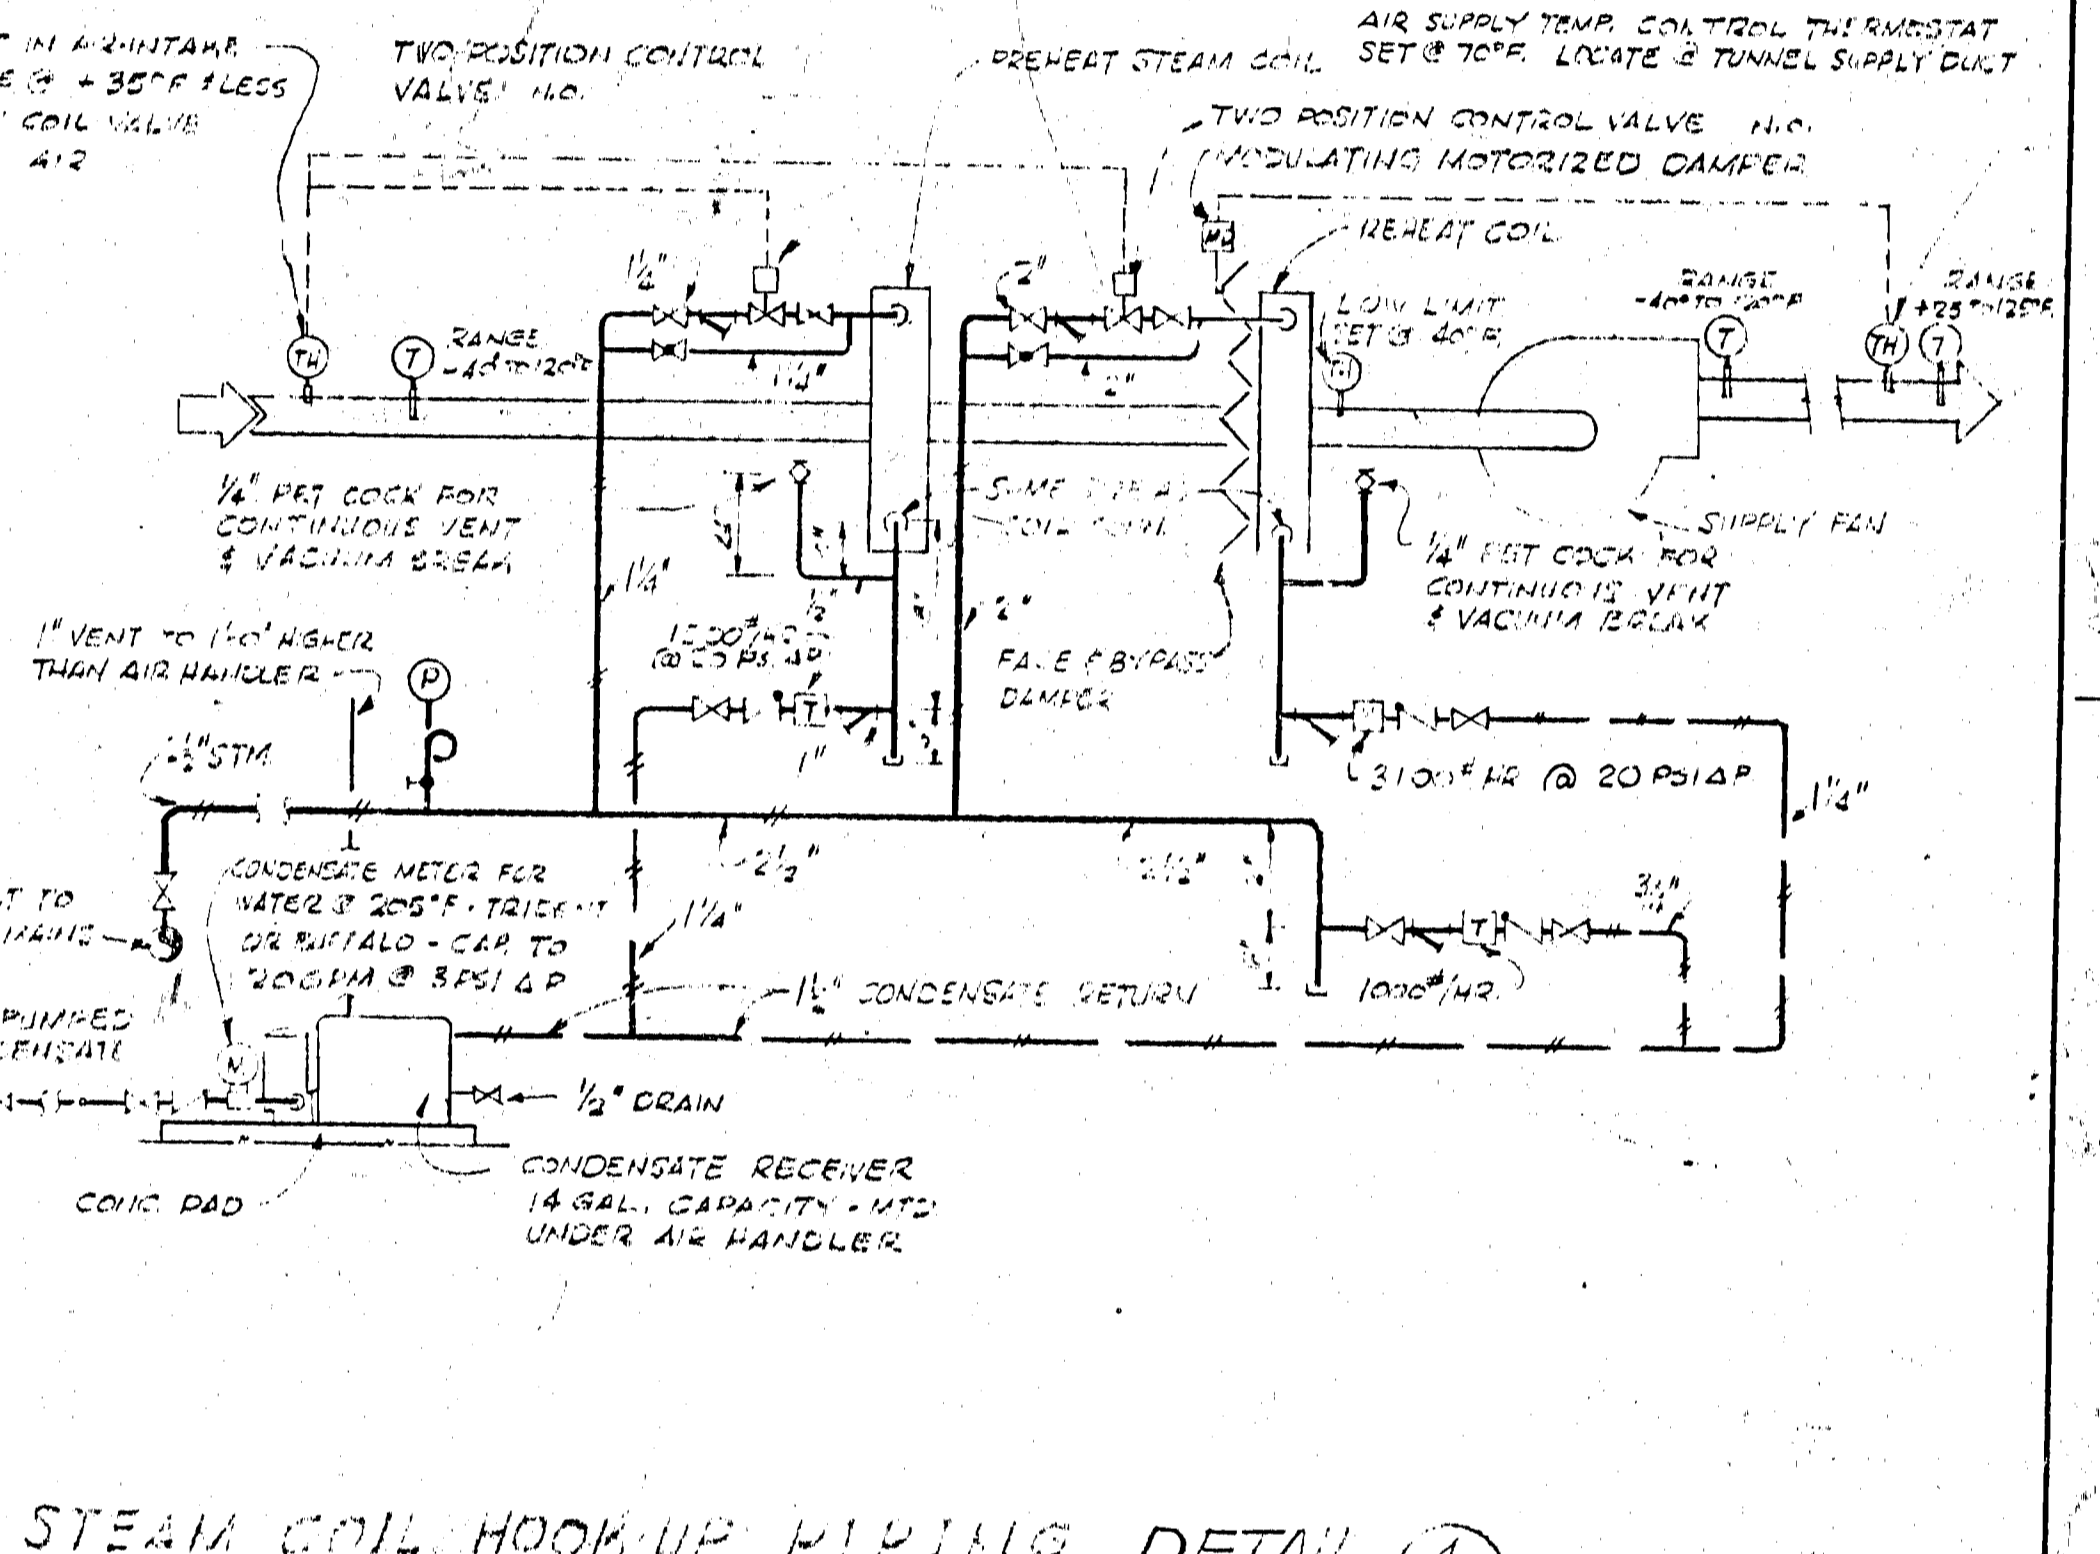 IN AIR INTAKE
E @ +35°F & LESS
COIL VALVE
AIR
TWO POSITION CONTROL
VALVE N.O.
PREHEAT STEAM COIL
AIR SUPPLY TEMP. CONTROL THERMOSTAT
SET @ 70°F. LOCATE @ TUNNEL SUPPLY DUCT
TWO POSITION CONTROL VALVE N.O.
MODULATING MOTORIZED DAMPER
REHEAT COIL
1¼"
2"
LOW LIMIT
SET @ 40°F.
RANGE
-40° TO 120°F
RANGE
+25° TO 125°F
TH
T
RANGE
-40° TO 120°F
1¼"
2"
T
TH
T
¼" PET COCK FOR
CONTINUOUS VENT
& VACUUM BREAK
SAME SIZE AS
COIL CONN.
SUPPLY FAN
¼" PET COCK FOR
CONTINUOUS VENT
& VACUUM BREAK
1¼"
½"
2"
1" VENT TO 1'-0" HIGHER
THAN AIR HANDLER
P
FACE & BYPASS
DAMPER
T
1"
STM
3100#/HR @ 20 PSI ΔP
1¼"
2½"
2½"
CONDENSATE METOR FOR
WATER @ 205°F - TRIDENT
OR BUFFALO - CAP. TO
20 GPM @ 3 PSI ΔP
T TO
MAINS
1¼"
T
1000#/HR.
1½" CONDENSATE RETURN
PUMPED
DENSATE
M
½" DRAIN
CONC. PAD
CONDENSATE RECEIVER
14 GAL. CAPACITY - MTD
UNDER AIR HANDLER
STEAM COIL HOOK-UP PIPING DETAIL 1